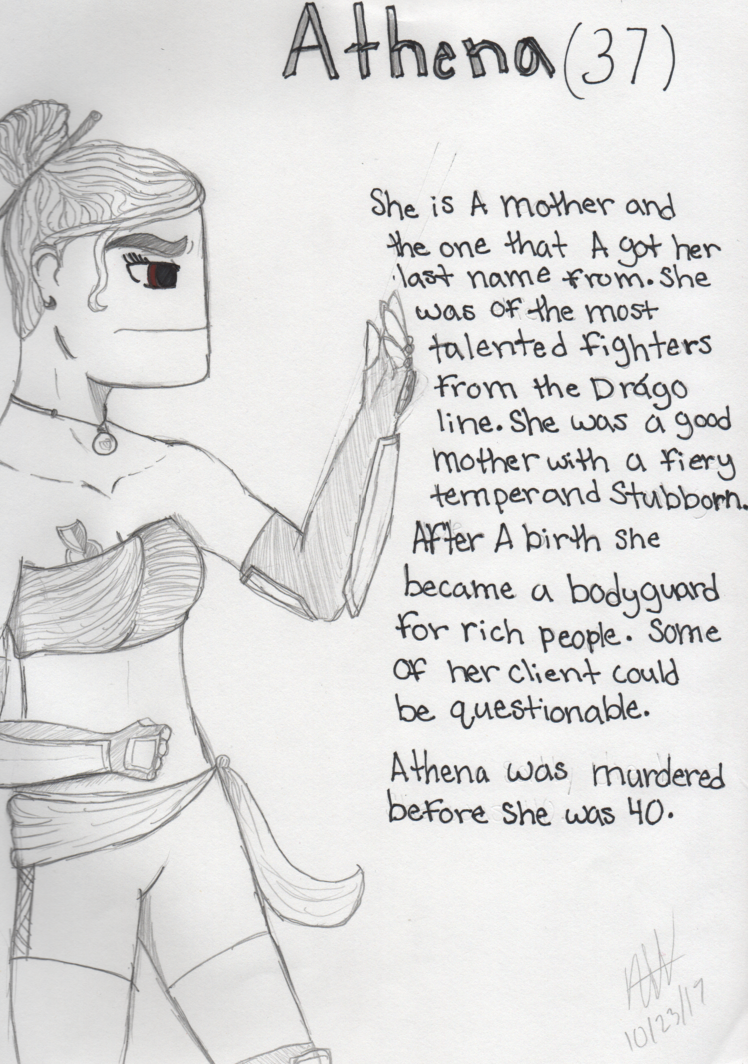 Athena (37)
She is A mother and
the one that A got her
last name from. She
was of the most
talented fighters
from the Drágo
line. She was a good
mother with a fiery
temper and Stubborn.
After A birth she
became a bodyguard
for rich people. Some
of her client could
be questionable.
Athena was murdered
before she was 40.
10/23/17